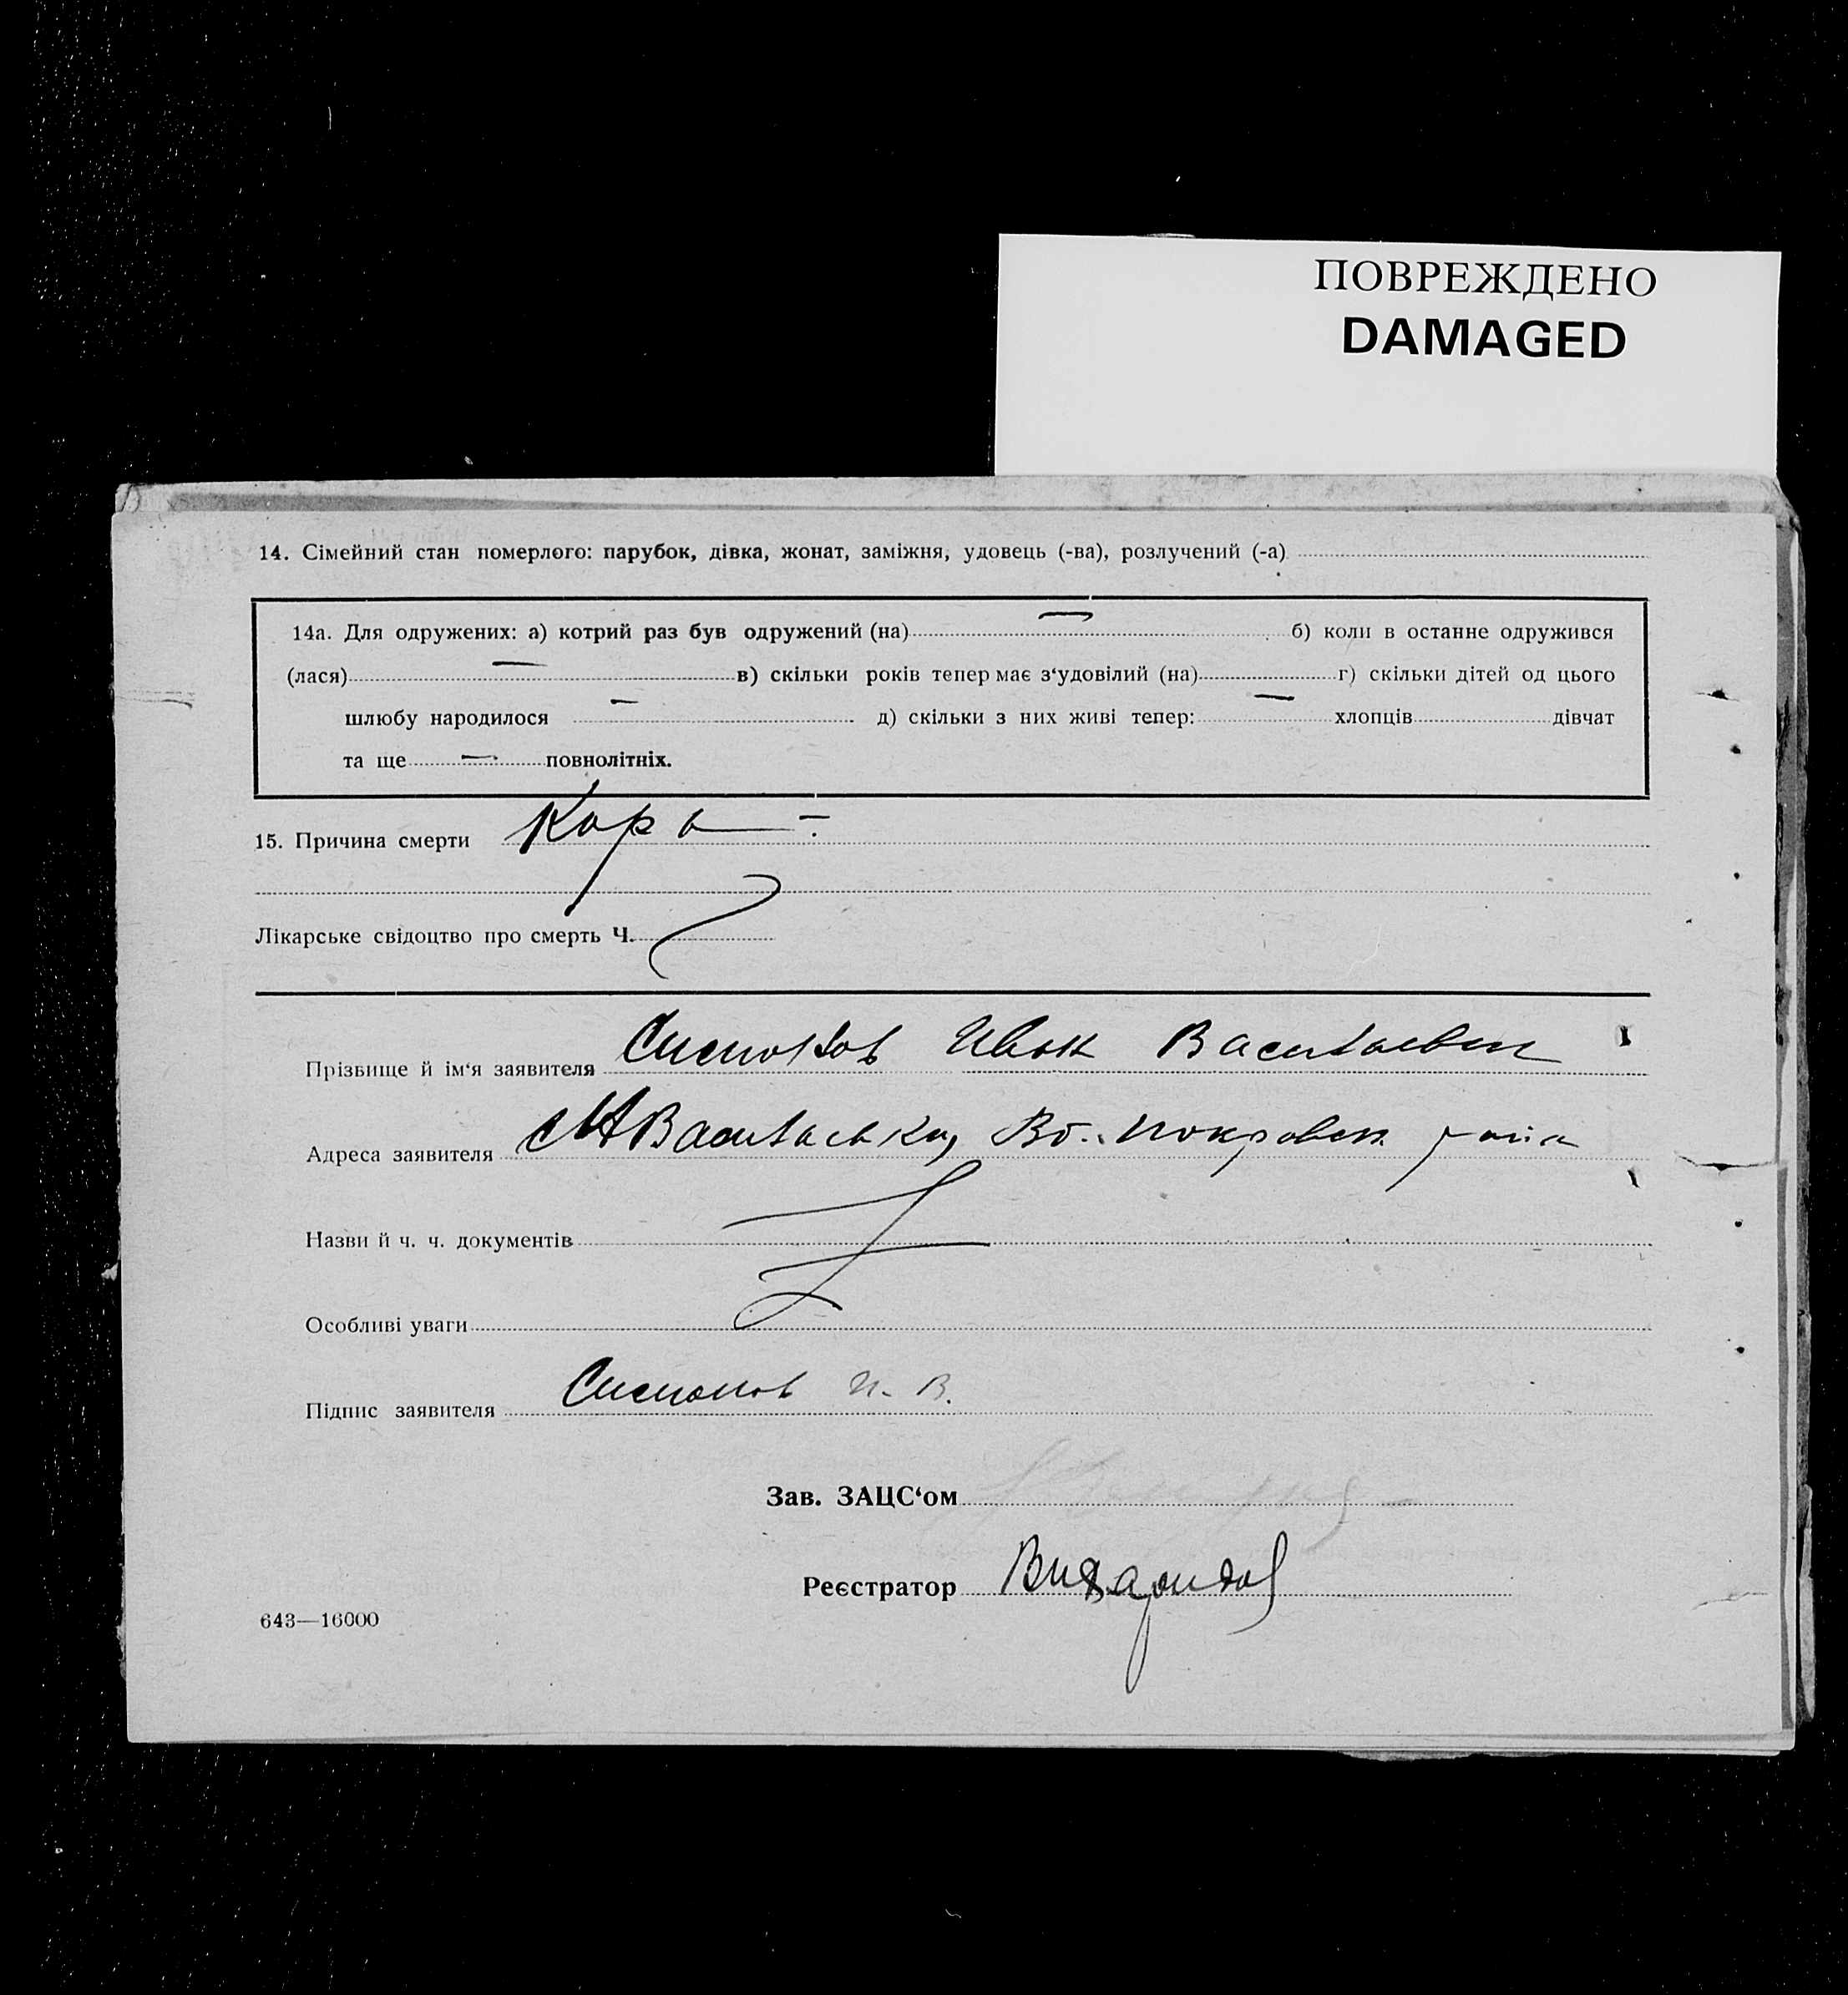 ПОВРЕЖДЕНО
DAMAGED
14. Сімейний стан померлого: парубок, дівка, жонат, заміжня, удовець (-ва), розлучений (-а)
14а. Для одружених: а) котрий раз був одружений (на) — б) коли в останне одружився
(лася) — в) скільки років тепер має з‘удовілий (на) г) скільки дітей од цього
шлюбу народилося — д) скільки з них живі тепер: — хлопців дівчат
та ще — повнолітніх.
15. Причина смерти Кора —
Лікарське свідоцтво про смерть Ч.
Прізвище й ім‘я заявителя Иван Васильевич
Адреса заявителя Васильевка, Вб. Покровск. района
Назви й ч. ч. документів
Особливі уваги
Підпис заявителя И. В.
Зав. ЗАЦС‘ом
Реєстратор
643—16000